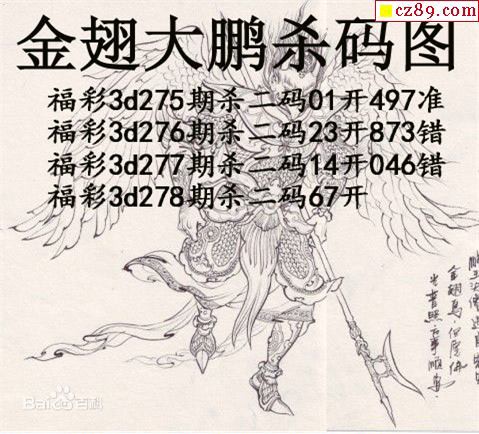 cz89.com
金翅大鹏杀码图
福彩3d275期杀二码01开497准
福彩3d276期杀二码23开873错
福彩3d277期杀二码14开046错
福彩3d278期杀二码67开
Bai百科